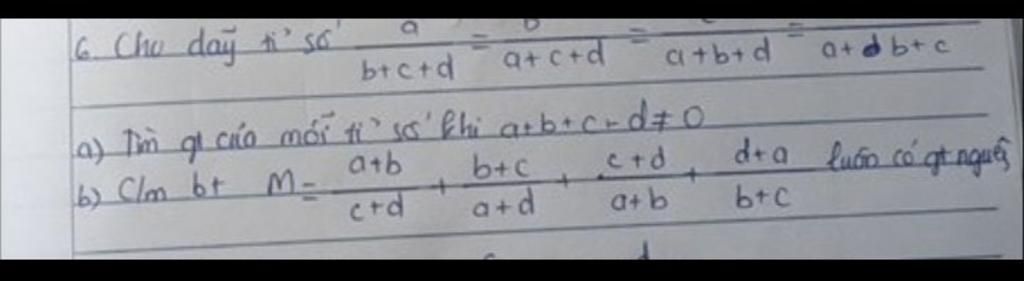 6. Cho dãy tỉ số a/(b+c+d) = b/(a+c+d) = /(a+b+d) = /(a+b+c)
a) Tìm gt của mỗi tỉ số khi a+b+c+d≠0
b) C/m bt M = (a+b)/(c+d) + (b+c)/(a+d) + (c+d)/(a+b) + (d+a)/(b+c) luôn có gt nguyê